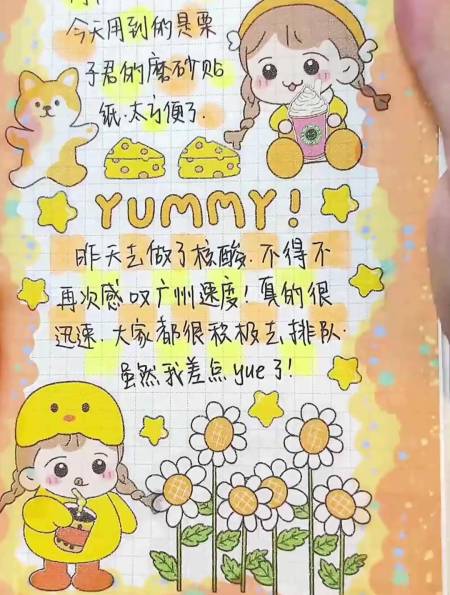 今天用到的是栗
子君的磨砂贴
纸.太方便了.
YUMMY!
昨天去做了核酸.不得不
再次感叹广州速度!真的很
迅速.大家都很积极去排队.
虽然我差点yue了!